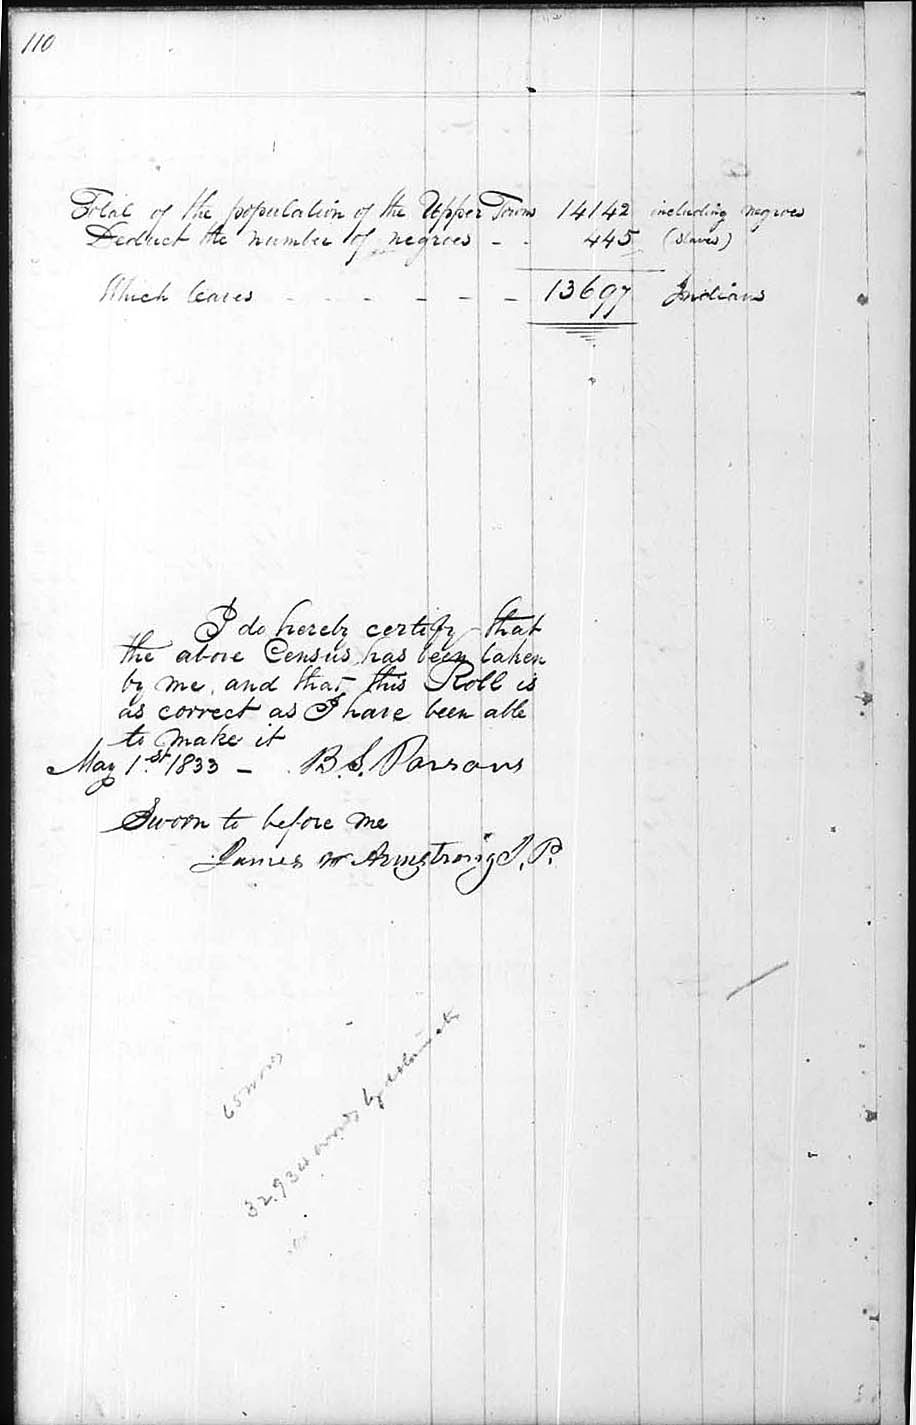 110
Total of the population of the Upper Town 14142 including negroes
Deduct the number of negroes - - 445 (slaves)
Which leaves - - - - - - 13697 Indians
I do hereby certify that
the above Census has been taken
by me, and that this Roll is
as correct as I have been able
to make it
May 1st. 1833 - B. S. Parsons
Sworn to before me
James W Armstrong J. P.
65 words
words by